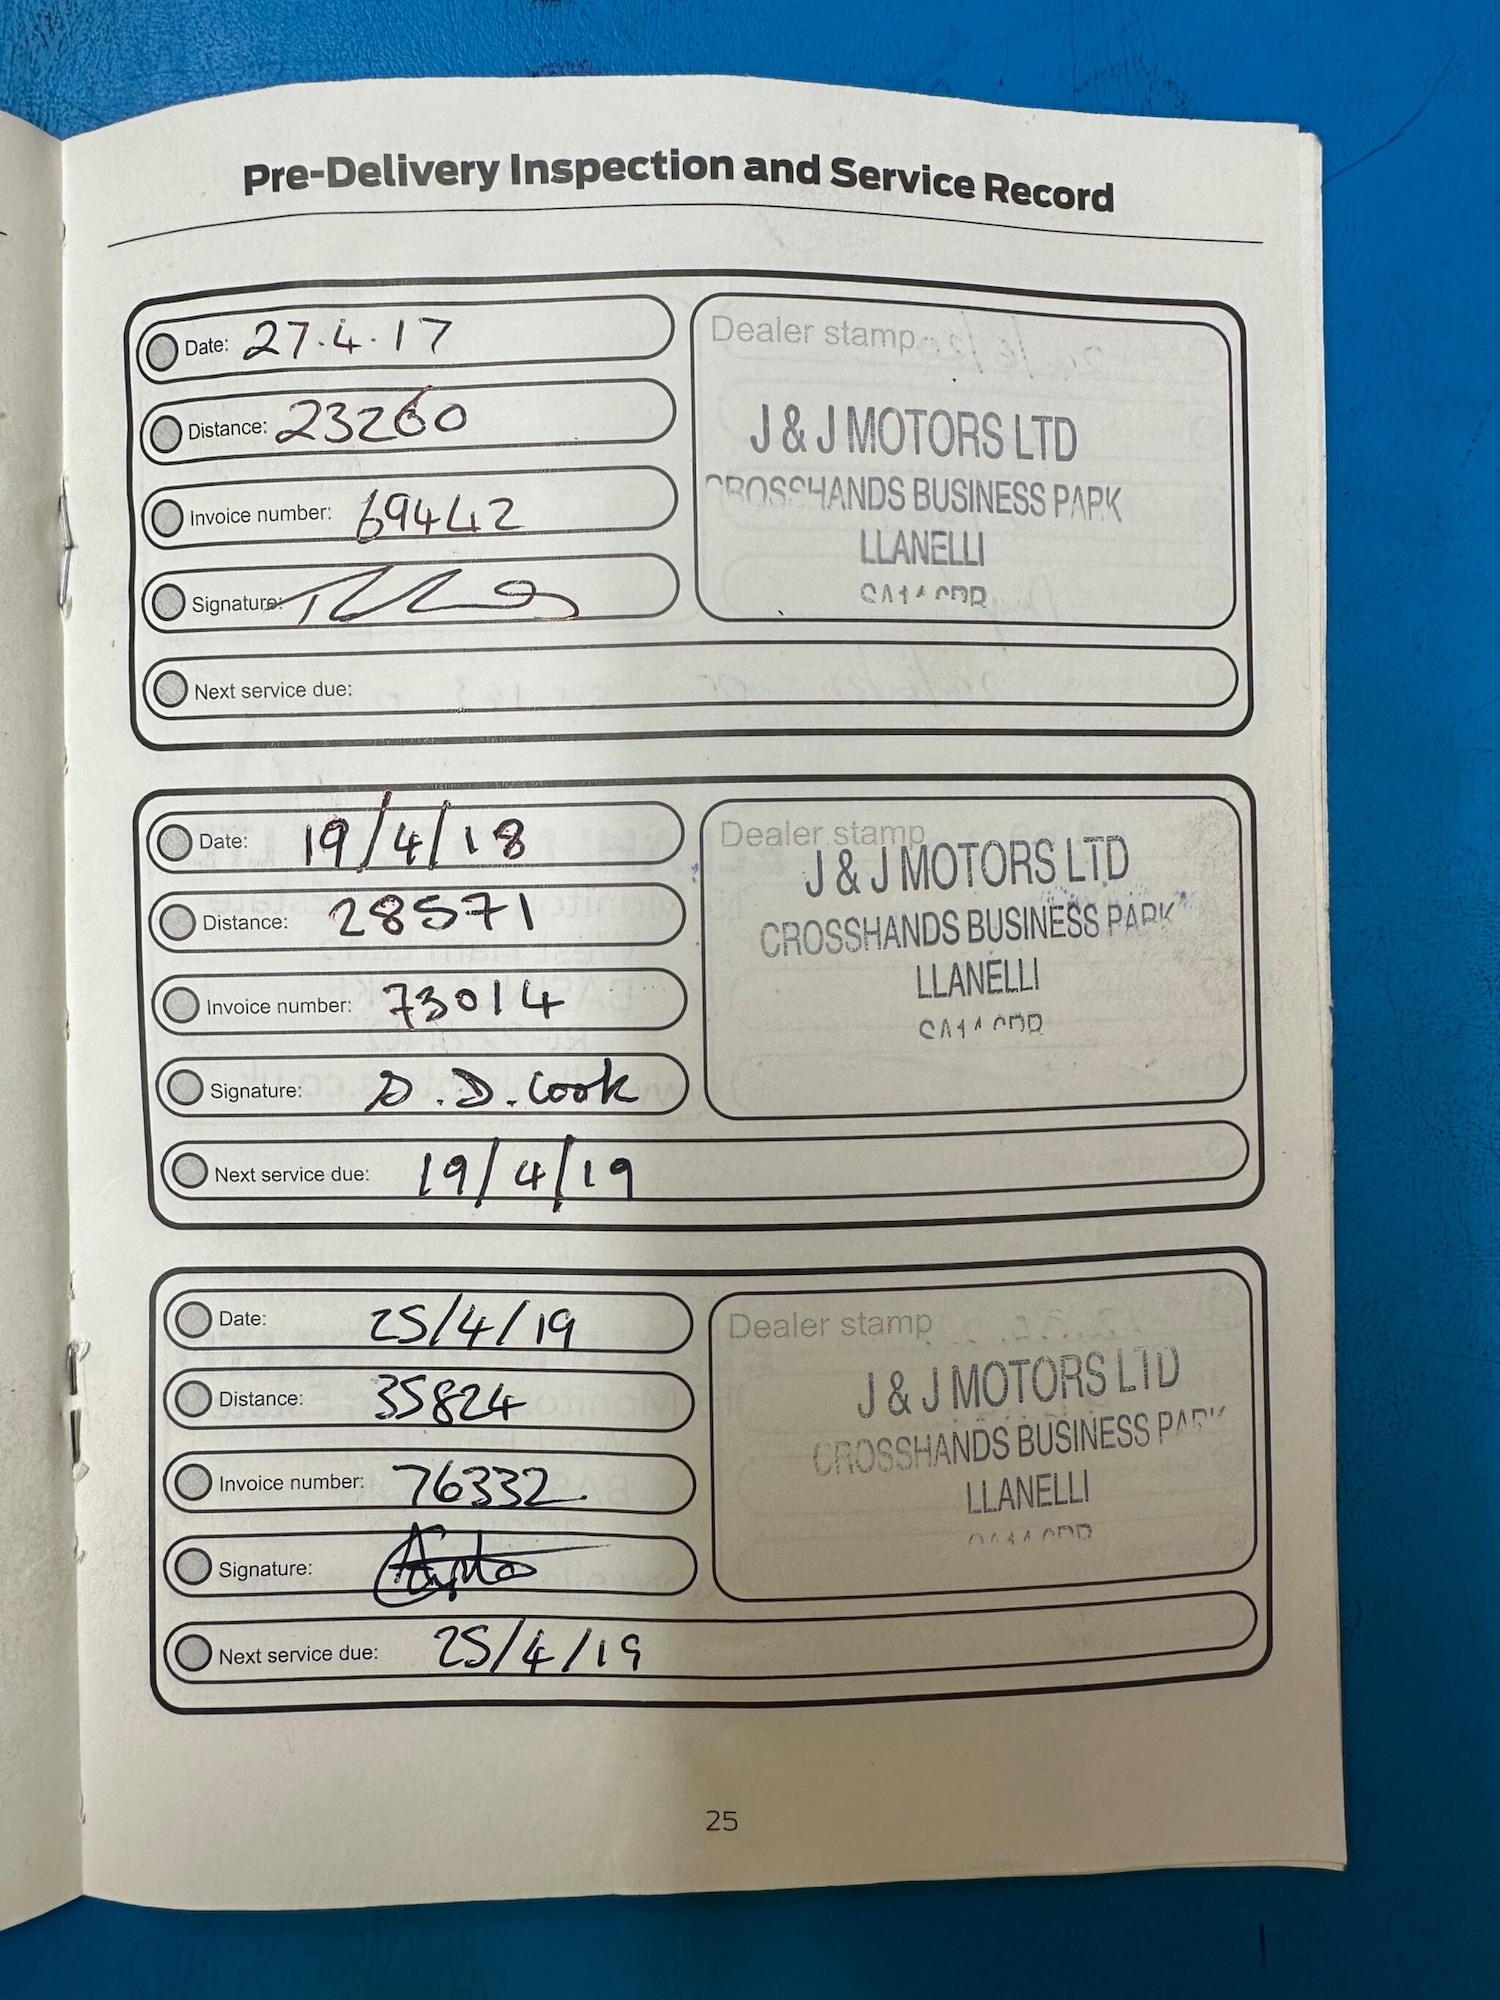 Pre-Delivery Inspection and Service Record
Date: 27.4.17
Distance: 23260
Invoice number: 69442
Signature:
Next service due:
Dealer stamp
J & J MOTORS LTD
CROSSHANDS BUSINESS PARK
LLANELLI
Date: 19/4/18
Distance: 28571
Invoice number: 73014
Signature: D. D. Cook
Next service due: 19/4/19
Dealer stamp
J & J MOTORS LTD
CROSSHANDS BUSINESS PARK
LLANELLI
Date: 25/4/19
Distance: 35824
Invoice number: 76332
Signature:
Next service due: 25/4/19
Dealer stamp
J & J MOTORS LTD
CROSSHANDS BUSINESS PARK
LLANELLI
25